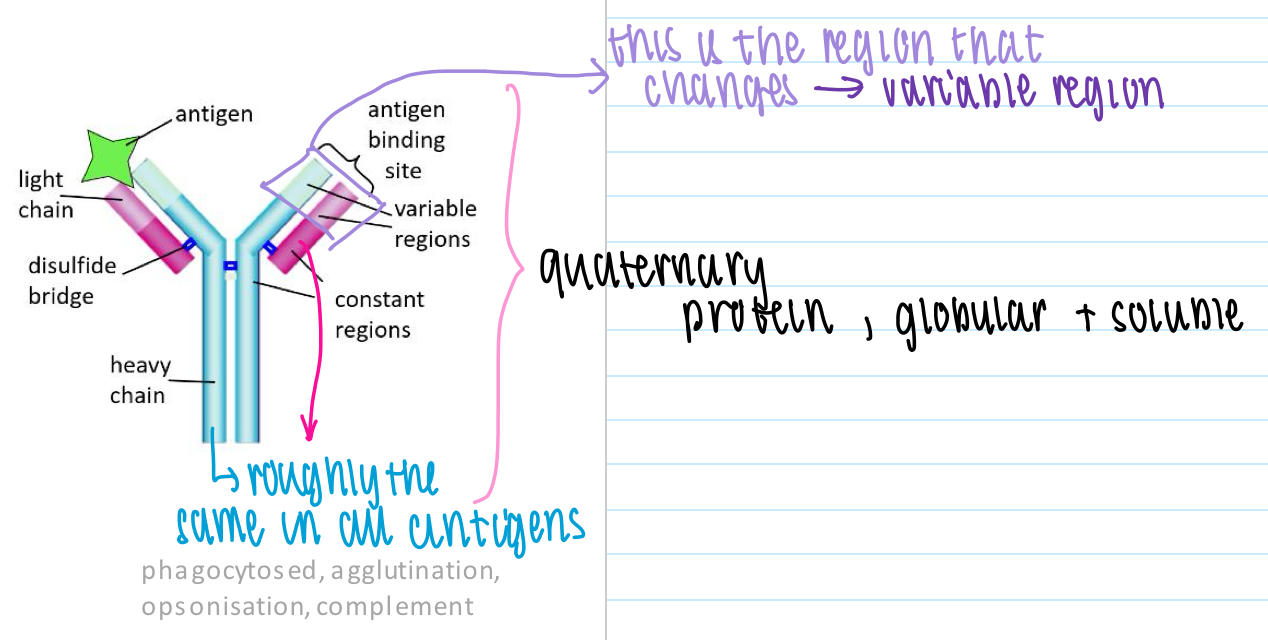 this is the region that
changes → variable region
antigen
antigen
binding
site
light
chain
variable
regions
disulfide
bridge
constant
regions
quaternary
protein, globular + soluble
heavy
chain
roughly the
same in all antigens
phagocytosed, agglutination,
opsonisation, complement